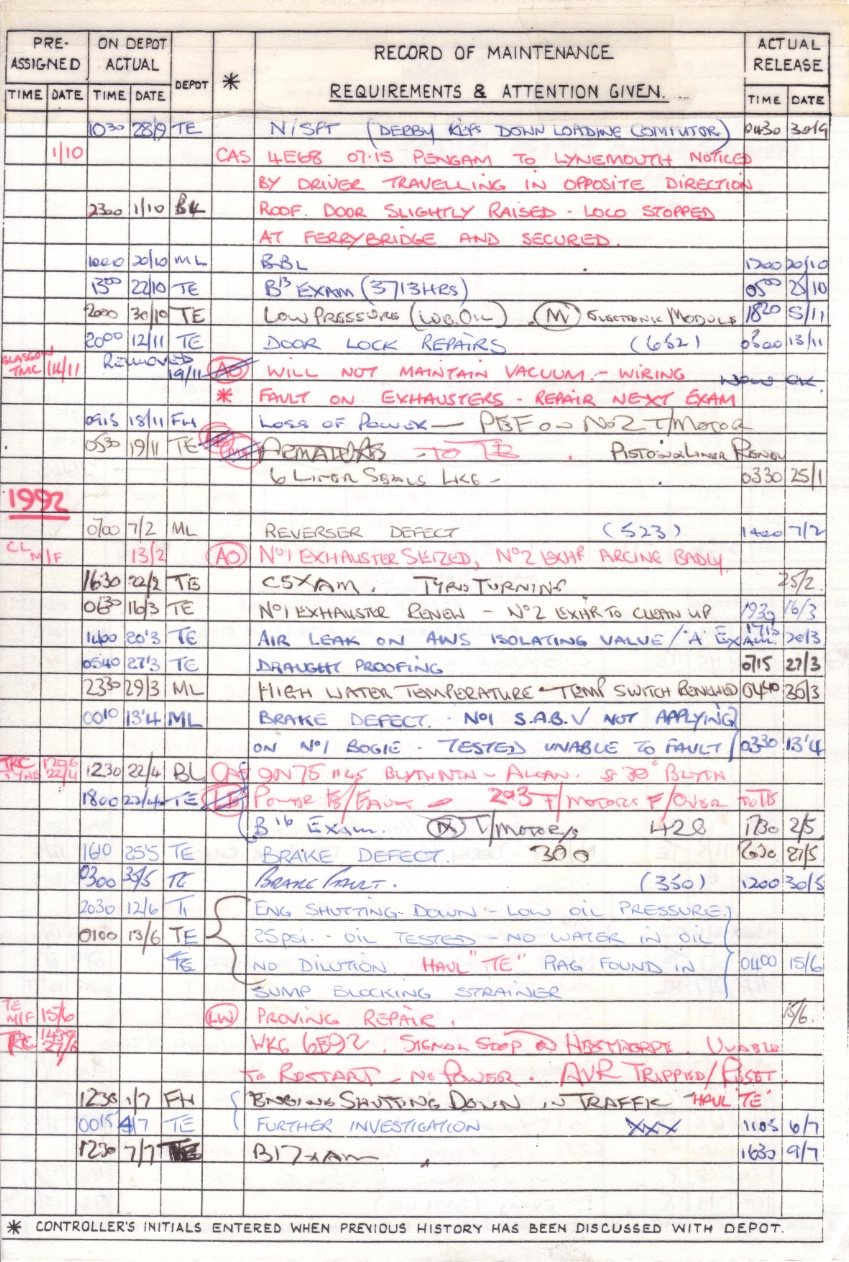 PRE-ASSIGNED ON DEPOT ACTUAL DEPOT * RECORD OF MAINTENANCE REQUIREMENTS & ATTENTION GIVEN. ACTUAL RELEASE
TIME DATE TIME DATE TIME DATE
1030 28/9 TE NISPT (DERBY DOWN LOADING COMPUTOR) 0430 30/9
1/10 CAS 4E68 07.15 PENGAM TO LYNEMOUTH NOTICED
BY DRIVER TRAVELLING IN OPPOSITE DIRECTION
2300 1/10 ROOF. DOOR SLIGHTLY RAISED - LOCO STOPPED
AT FERRYBRIDGE AND SECURED.
20/10 ML BBL 1200 20/10
1300 22/10 TE B13 EXAM (3713HRS) 0500 25/10
2000 30/10 TE LOW PRESSURE (LUB. OIL) M ELECTRONIC MODULE 1820 5/11
2000 12/11 TE DOOR LOCK REPAIRS (652) 0300 13/11
GLASGOW TMC 14/11 REMOVED 19/11 AO WILL NOT MAINTAIN VACUUM. - WIRING NOW OK.
* FAULT ON EXHAUSTERS - REPAIR NEXT EXAM
0915 18/11 FH LOSS OF POWER - PBF ON No2 T/MOTOR
0530 19/11 TE TO TE PISTON & LINER RENEW
6 LINER SEALS LKG - 0330 25/1
1992
0700 7/2 ML REVERSER DEFECT (523) 1400 7/2
CL M/F 13/2 AO No1 EXHAUSTER SEIZED, No2 EXHR ARCING BADLY.
1630 22/2 TE C EXAM. TYRE TURNING 25/2.
0630 16/3 TE No1 EXHAUSTER RENEW - No2 EXHR TO CLEAN UP 1930 16/3
1400 20'3 TE AIR LEAK ON AWS ISOLATING VALUE / 'A' EXAM. 1715 20/3
0540 27'3 TE DRAUGHT PROOFING 0715 27/3
2330 29/3 ML HIGH WATER TEMPERATURE - TEMP SWITCH RENEWED 0440 30/3
0010 13'4 ML BRAKE DEFECT. - No1 S.A.B.V NOT APPLYING
ON No1 BOGIE - TESTED UNABLE TO FAULT 0330 13'4
TRC TYNE 1206 22/4 1230 22/4 BL 9N75 1145 BLYTH NTH - ALCAN. BLYTH
1800 22/4 TE POWER E/FAULT 2 & 3 T/MOTORS F/OVER TO TE
B16 EXAM. X T/MOTORS 428 1730 2/5
1610 25'5 TE BRAKE DEFECT. 300 27/5
0300 30/5 TE BRAKE FAULT. (350) 1200 30/5
2030 12/6 TI ENG SHUTTING DOWN - LOW OIL PRESSURE.
0100 13/6 TE 25psi. - OIL TESTED - NO WATER IN OIL
TE NO DILUTION HAUL "TE" RAG FOUND IN 0400 15/6
SUMP BLOCKING STRAINER
TE M/F 15/6 LW PROVING REPAIR. 15/6.
TRC 27/6 WKG 6B92. SIGNAL STOP @ HESTHORPE. UNABLE
TO RESTART - NO POWER. AVR TRIPPED/RESET.
1230 1/7 FH ENGINE SHUTTING DOWN IN TRAFFIC HAUL "TE"
0015 4/7 TE FURTHER INVESTIGATION XXX 1105 6/7
1230 7/7 TE B17 EXAM 1630 9/7
* CONTROLLER'S INITIALS ENTERED WHEN PREVIOUS HISTORY HAS BEEN DISCUSSED WITH DEPOT.